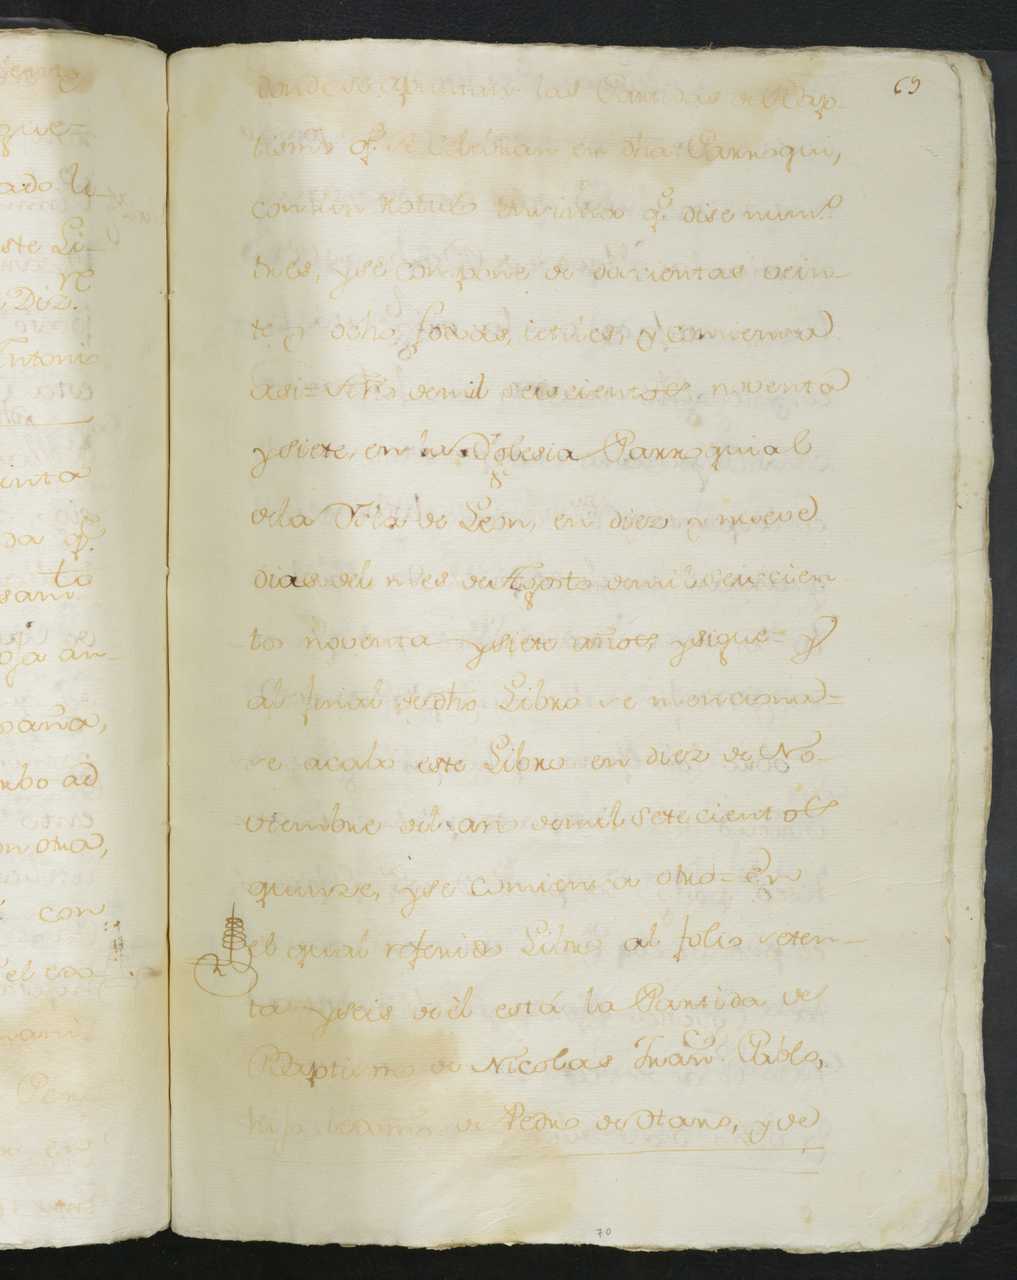 69
donde se apuntan las Partidas de Bap-
tismo q.e se celebran en dha Parroqui,
con un Rotulo encima q.e dise num.o
tres, y se compone de docientas vein-
te y ocho foxas, utiles, y comienza
asi = Año de mil seiscientos, noventa
y siete, en la Yglesia Parroquial
de la Villa de Leon, en diez y nueve
dias del mes de Agosto de mil seiscien
tos noventa y siete años, y sigue = Y
al final de dho Libro se menciona =
se acabo este Libro en diez de No-
viembre del año de mil setecientos
quinze, y se comienza otro = En
el qual referido Libro al folio seten-
ta y seis de èl està la Partida de
Baptismo de Nicolas Fran.co Pablo,
hijo lexmo de Pedro de Otano, y de
70